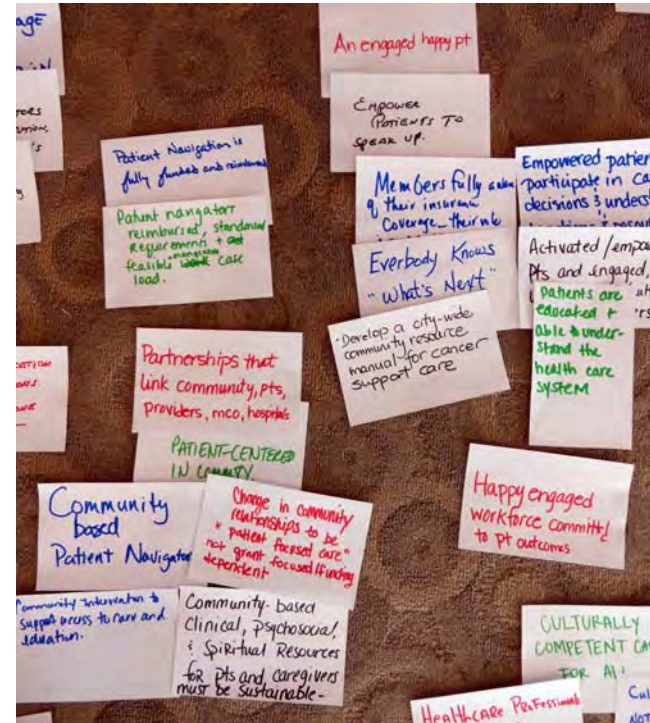 An engaged happy pt
EMPOWER
PATIENTS TO
SPEAK UP.
Patient Navigation is
fully funded and reimbursed
Patient navigators
reimbursed, standard
requirements +
feasible manageable case
load.
Members fully
of their insurance
coverage their role
Empowered patien
participate in ca
decisions & underst
Everbody Knows
"What's Next"
Activated/empow
pts and engaged,
patients are
educated +
able to under-
stand the
health care
system
·Develop a city-wide
community resource
manual for cancer
support care
Partnerships that
link community, pts,
providers, mco, hospitals
PATIENT-CENTERED
IN
Community
based
Patient Navigator
Change in community
relationships to be
"patient focused care"
not grant focused/funding
dependent
Community Intervention to
support access to care and
education.
Community-based
Clinical, Psychosocial,
& Spiritual Resources
for pts and caregivers
must be sustainable-
Happy engaged
workforce
to pt outcomes
CULTURALLY
COMPETENT CA
FOR All
HealthCare Professionals
Cul
NOT